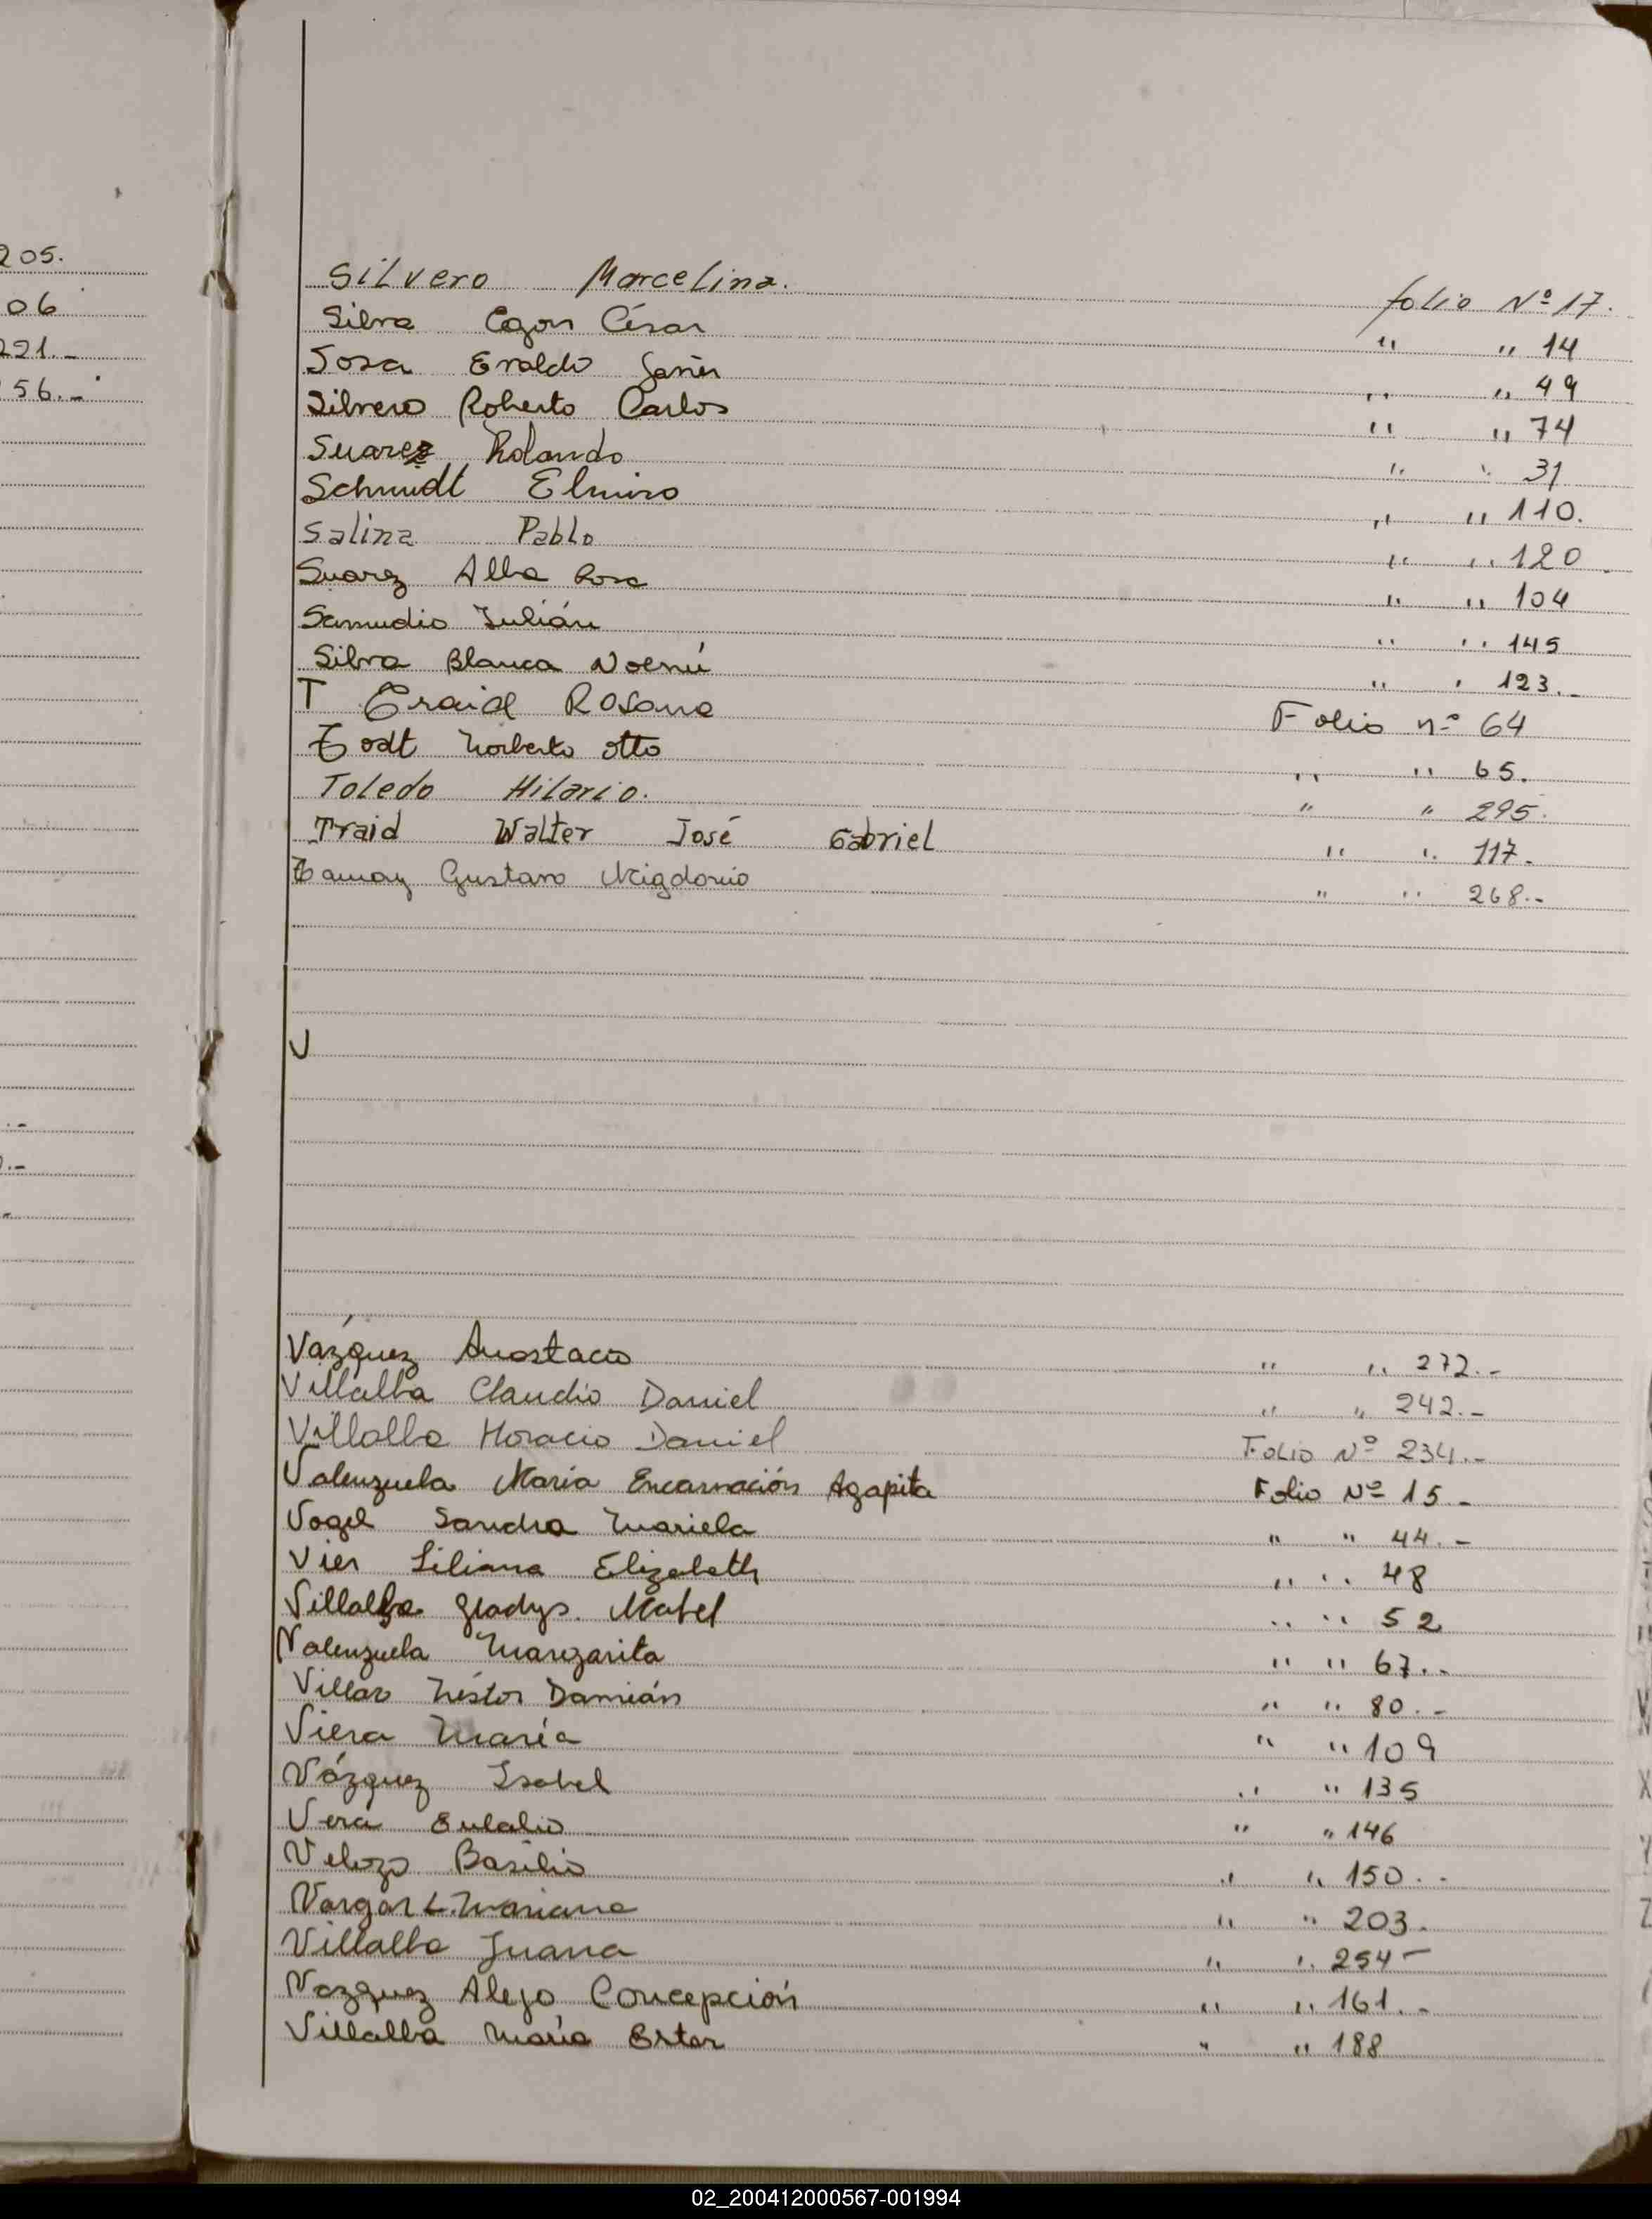 205.
06
221.-
56.-
Silvero Marcelina. folio Nº 17.
Silva Egon César " " 14
Sosa Evaldo Javier " " 49
Silvero Roberto Carlos " " 74
Suarez Rolando " " 31
Schmidt Elmiro " " 110.
Salina Pablo " " 120
Suarez Alba Rosa " " 104
Samudio Julián " " 145
Silva Blanca Noemí " " 123.-
T Traid Rosana Folio nº 64
Todt Norberto Otto " " 65.
Toledo Hilario. " " 295.
Traid Walter José Gabriel " " 117.
Tamay Gustavo Migdonio " " 268.-
U
Vazquez Anastacio " " 272.-
Villalba Claudio Daniel " " 242.-
Villalba Horacio Daniel Folio Nº 234.-
Valenzuela María Encarnación Agapita Folio Nº 15.-
Vogel Sandra Mariela " " 44.-
Vier Liliana Elizabeth " " 48
Villalba Gladys Mabel " " 52
Valenzuela Margarita " " 67.-
Villar Néstor Damián " " 80.-
Viera María " " 109
Vázquez Isabel " " 135
Vera Eulalio " " 146
Velozo Basilio " " 150.-
Vargas L. Mariana " " 203.
Villalba Juana " " 254-
Vazquez Alejo Concepción " " 161.-
Villalba María Ester " " 188
02_200412000567-001994